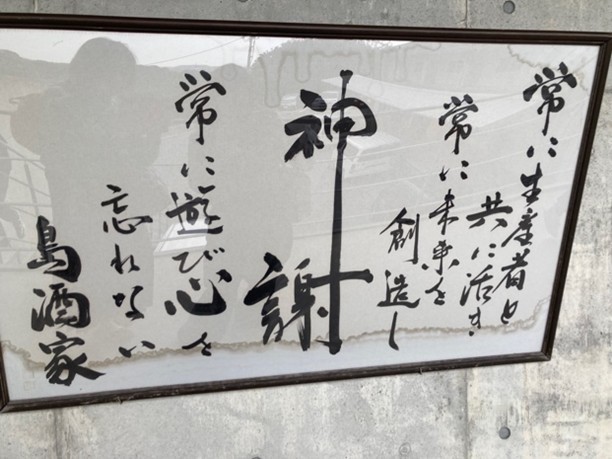 常に生産者と
共に活き
常に未来を
創造し
神謝
常に遊び心を
忘れない
島酒家